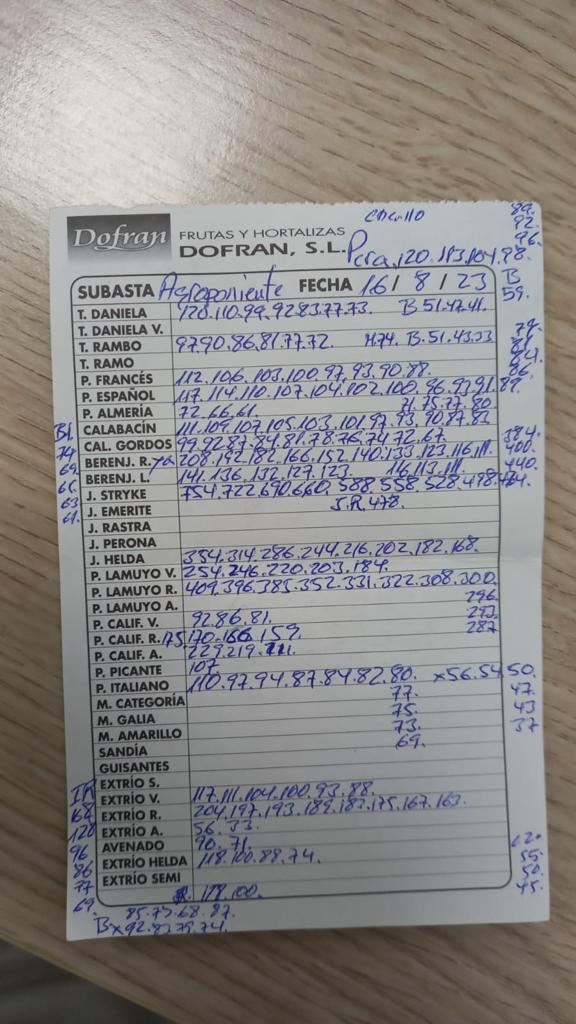 Dofran FRUTAS Y HORTALIZAS
DOFRAN, S.L. Pera, 120.113.104.98.
89.
92.
96.
SUBASTA Agroponiente FECHA 16 / 8 / 23 B
59.
T. DANIELA 120.110.99.92.83.77.73. B.51.47.41.
T. DANIELA V.
T. RAMBO 97.90.86.81.77.72. M.74. B.51.43.33
T. RAMO
P. FRANCÉS 112.106.103.100.97.93.90.88.
P. ESPAÑOL 117.114.110.107.104.102.100.96.93.91.89.
P. ALMERÍA 72.66.61.
CALABACÍN 111.109.107.105.103.101.97.93.90.87.83
CAL. GORDOS 99.92.87.84.81.78.76.74.72.67.
BERENJ. R. 208.192.182.166.152.140.133.123.116.111.
BERENJ. L. 141.136.132.127.123. 116.113.111.
J. STRYKE 754.722.690.660.588.558.528.498.
J. EMERITE J.R.478.
J. RASTRA
J. PERONA
J. HELDA 354.314.286.244.216.202.182.168.
P. LAMUYO V. 254.246.220.203.184.
P. LAMUYO R. 409.396.383.352.331.322.308.300.
P. LAMUYO A. 296.
P. CALIF. V. 92.86.81. 293.
P. CALIF. R. 175.170.166.159. 287
P. CALIF. A. 229.219.
P. PICANTE 107
P. ITALIANO 110.97.94.87.84.82.80. x56.54.50.
M. CATEGORÍA 77. 47.
M. GALIA 75. 43
M. AMARILLO 73. 37
SANDÍA 69.
GUISANTES
EXTRÍO S.
EXTRÍO V. 117.111.104.100.93.88.
EXTRÍO R. 204.197.193.189.182.175.167.163.
EXTRÍO A. 56.33.
AVENADO 90.71.
EXTRÍO HELDA 118.100.88.74.
EXTRÍO SEMI
128.100.
85.73.68.
Bx92.82.79.74.
74
69
65
63
61.
68
120
96
86
77
69.
384.
400.
440.
55.
50.
45.